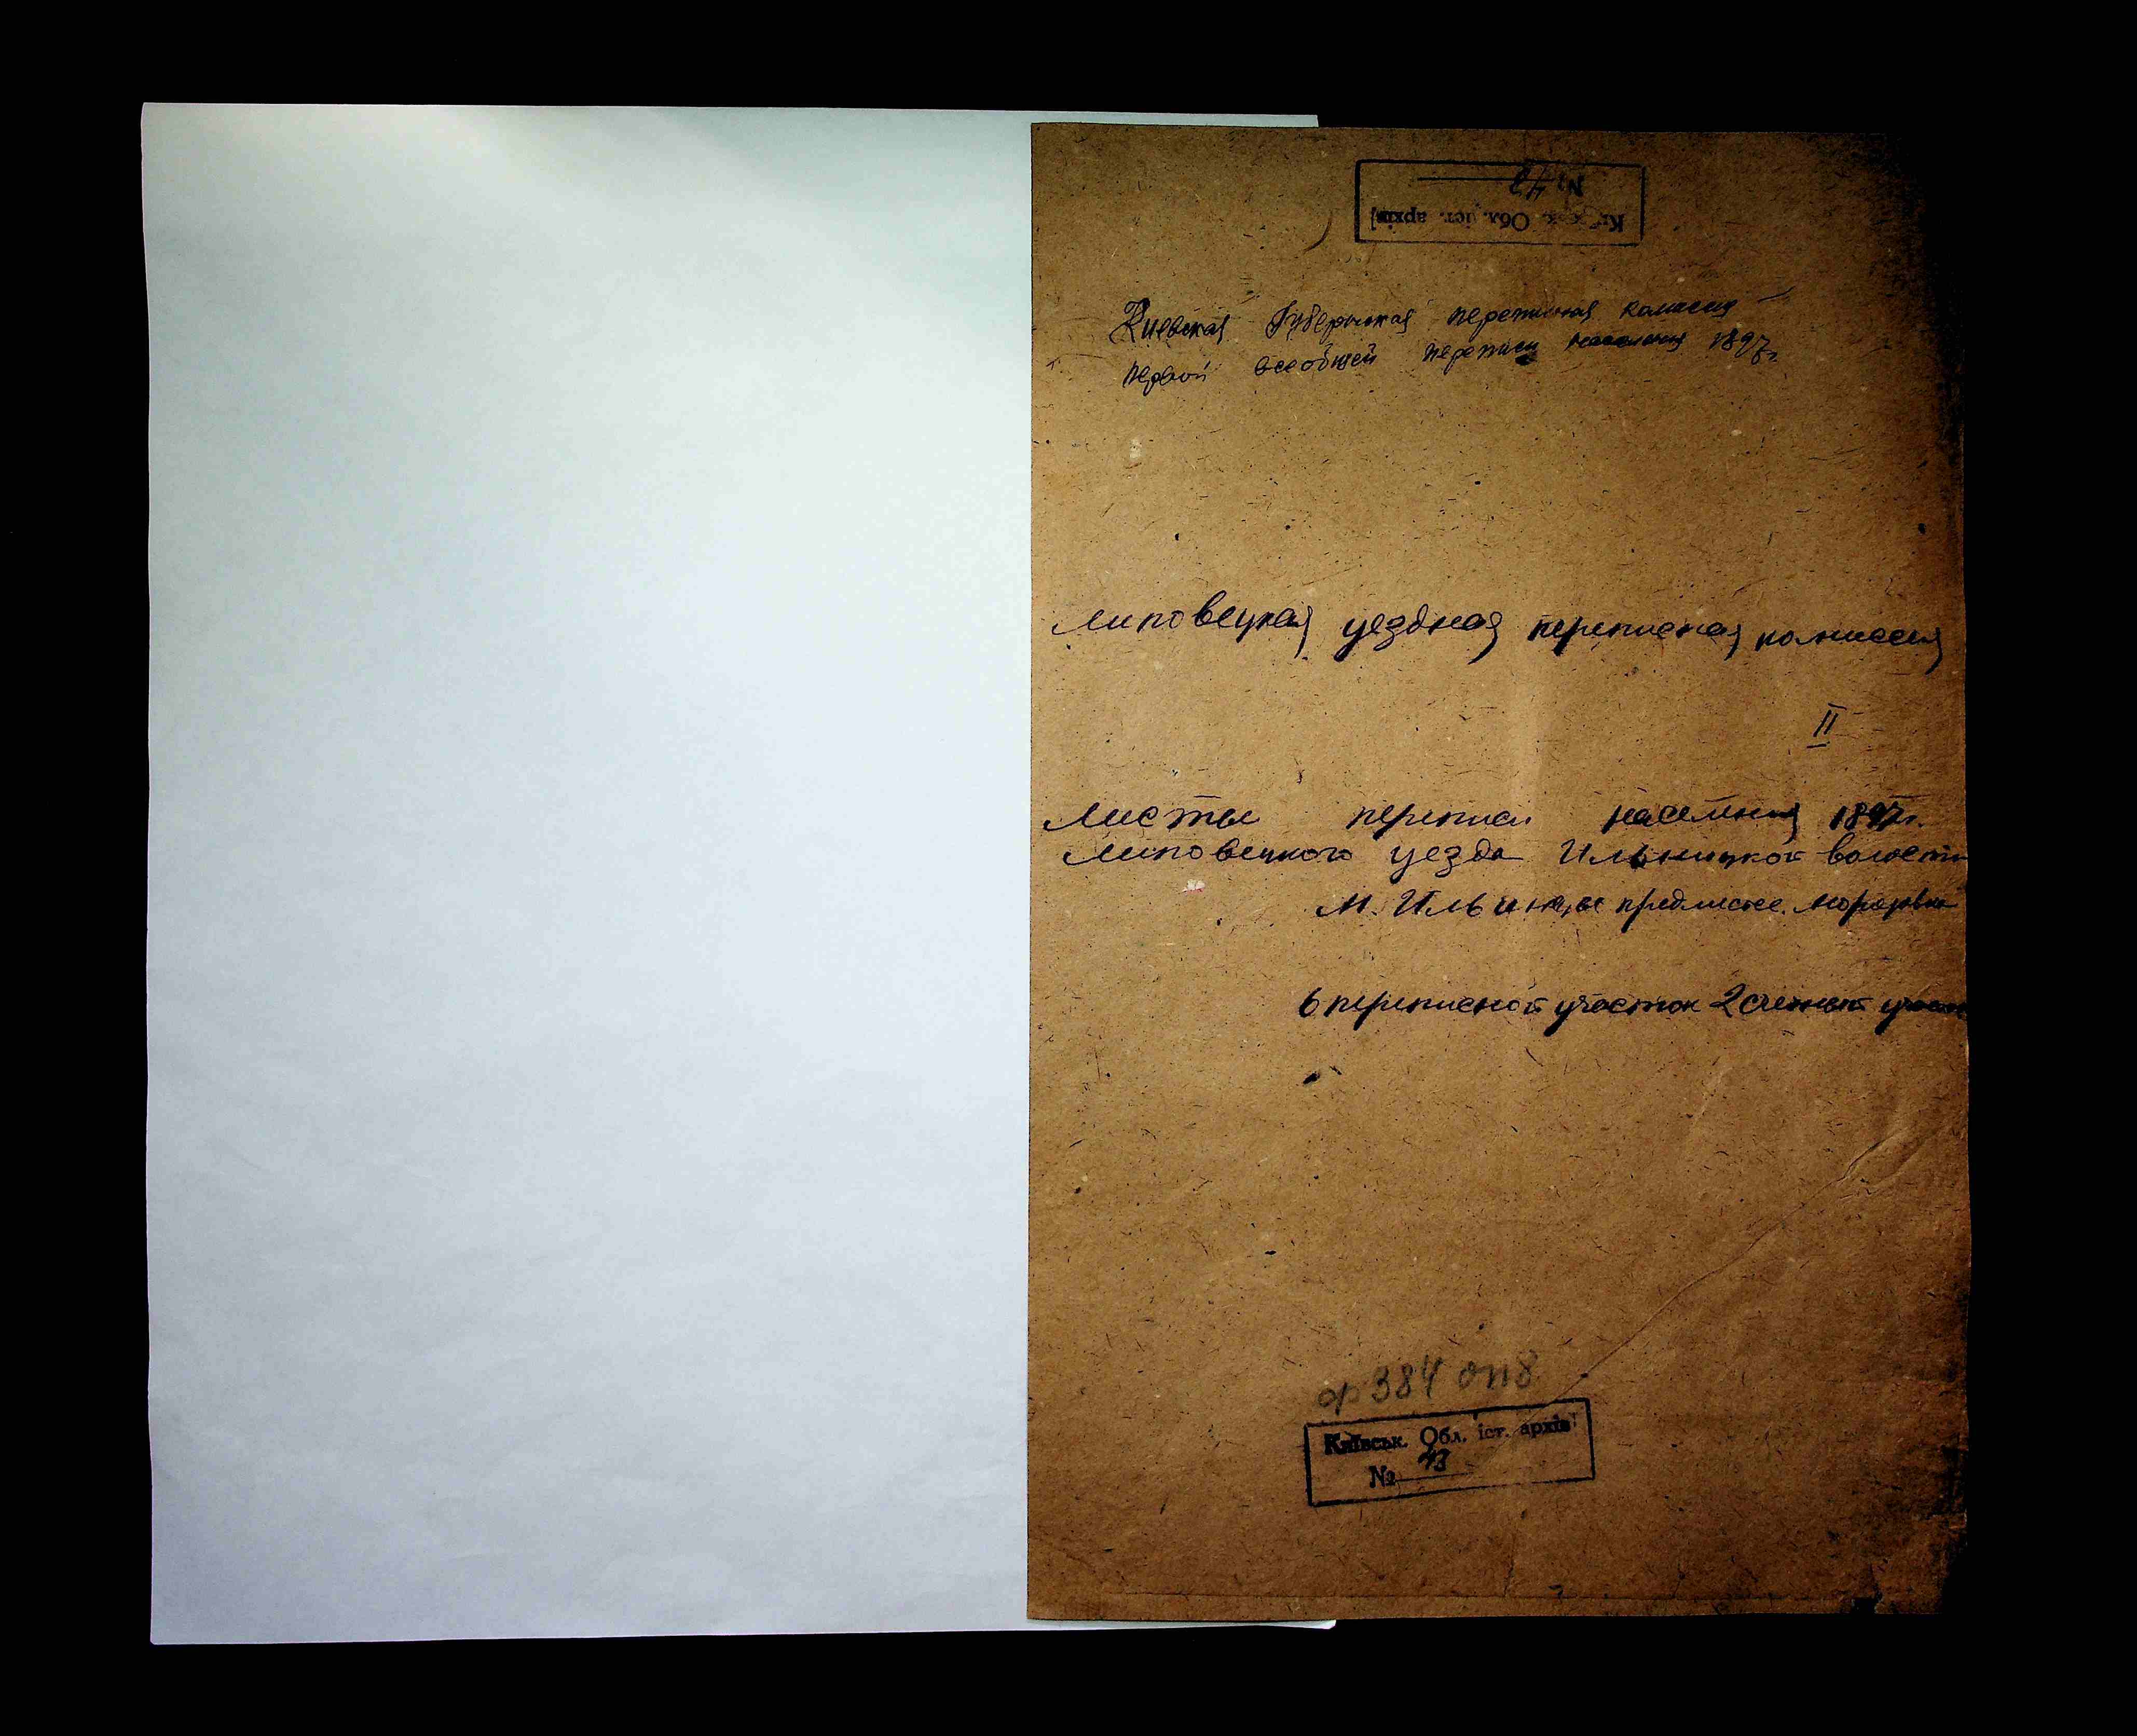 № 42
Обл. іст. архів
Киевская Губернская переписная комисия
первой всеобщей переписи населения 1897г.
Липовецкая уездная переписная комиссия
II
Листы переписи населения 1897г.
Липовецкого уезда Ильницкой волости
М. Ильинцы предместье
6 переписной участок 2 счетный
ф 384 оп 8
Київськ. Обл. іст. архів
№ 43